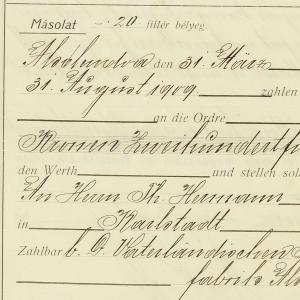 Másolat -.20. fillér bélyeg.
Alsólendva den 31. März
31. August 1909 zahlen
an die Ordre
Kronen Zweihundert
den Werth und stellen
An Herrn Th. Hermann
in Karlstadt
Zahlbar b. d. Vaterländischen
fabrik